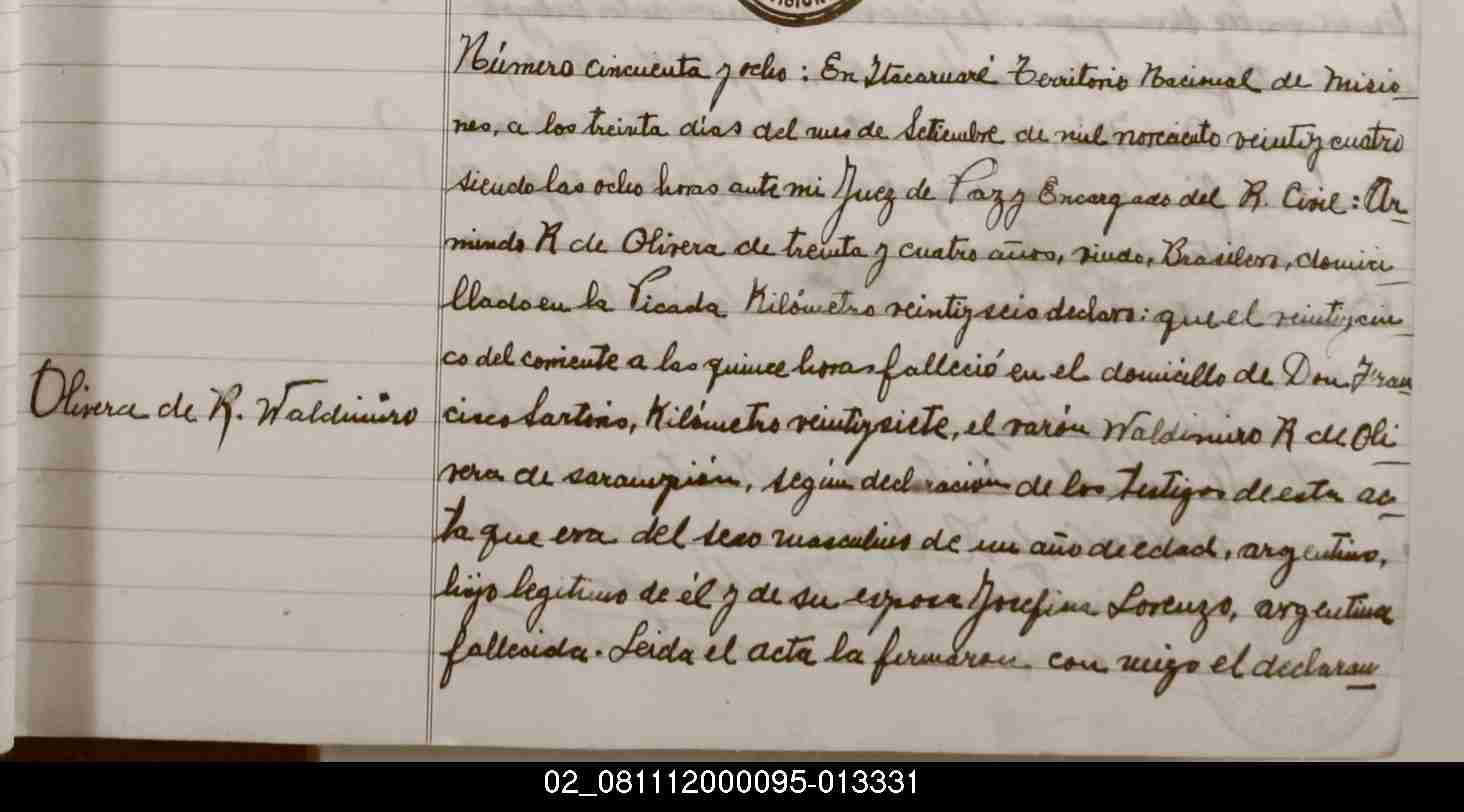 Número cincuenta y ocho: En Itacaruaré Territorio Nacional de Misio
nes, a los treinta días del mes de Setiembre de mil noveciento veintiy cuatro
siendo las ocho horas ante mi Juez de Paz y Encargado del R. Civil: Ar
mindo R de Olivera de treinta y cuatro años, viudo, Brasilero, domici
llado en la Picada Kilómetro veintiy seis declaro: que el veintiy cin
co del corriente a las quince horas falleció en el domicillo de Don Fran
Olivera de R. Waldimiro
cisco Sartorio, Kilómetro veintiy siete, el varón Waldimiro R de Oli
vera de sarampión, según declaración de los testigos de esta ac
ta que era del sexo masculino de un año de edad, argentino,
hijo legitimo de él y de su esposa Josefina Lorenzo, argentina
fallecida. Leida el acta la firmaron con migo el declaran
02_081112000095-013331